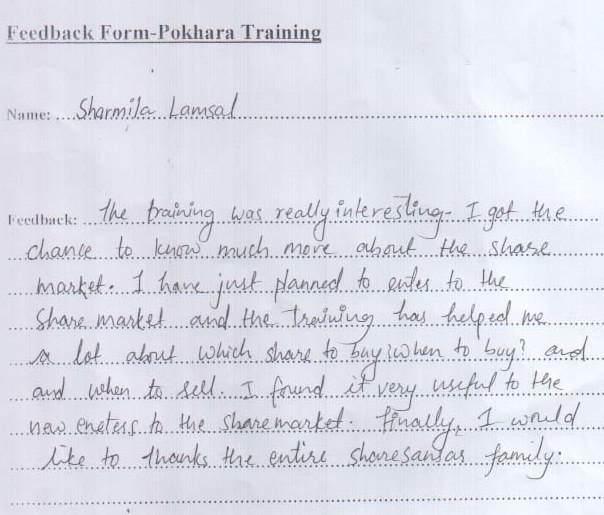 Feedback Form-Pokhara Training
Name: Sharmila Lamsal
Feedback: The training was really interesting. I got the
chance to know much more about the share
market. I have just planned to enter to the
share market and the training has helped me
a lot about which share to buy? when to buy? and
and when to sell. I found it very useful to the
new eneters to the sharemarket. Finally, I would
like to thanks the entire sharesansar family.